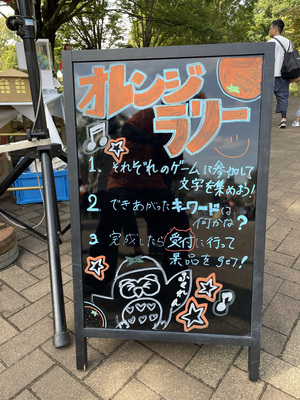 オレンジ
ラリー
1. それぞれのゲームに参加して
文字を集めよう!
2. できあがったキーワードは
何かな?
3. 完成したら受付に行って
景品をget!